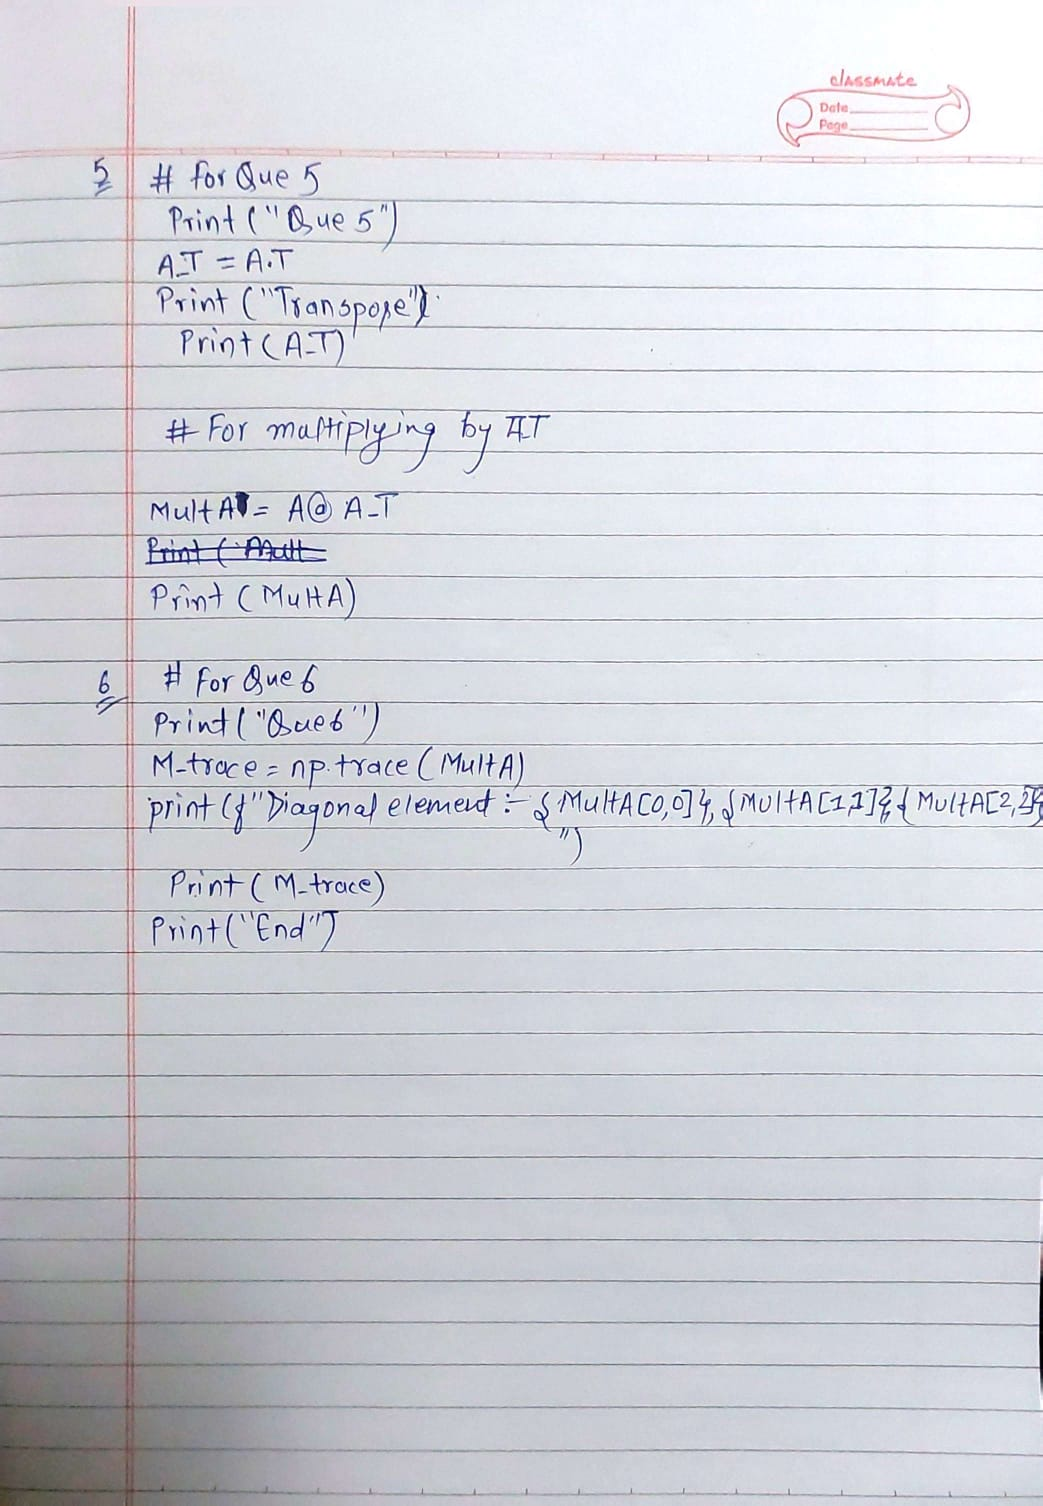 classmate
Date
Page
5 # For Que 5
Print ("Que 5")
A_T = A.T
Print ("Transpose")
Print (A_T)
# For multiplying by A_T
MultA = A@ A_T
Print ( Mult
Print (MultA)
6 # For Que 6
Print ("Que 6")
M_trace = np.trace (MultA)
print (f"Diagonal element :- {MultA[0,0]}, {MultA[1,1]}, {MultA[2,2]}
")
Print (M_trace)
Print ("End")